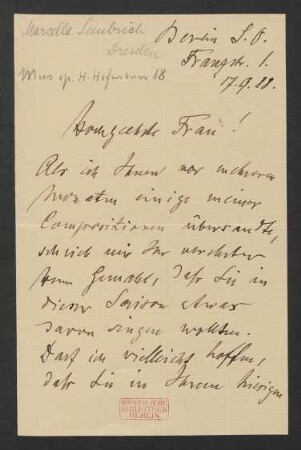 Marcella Sembrich
Dresden
Mus. ep. H. Hofmann 18
Berlin S. O.
Franzstr. 1.
17.9.88.
Hochgeehrte Frau!
Als ich Ihnen vor mehreren
Monaten einige meiner
Compositionen übersandte,
schrieb mir Ihr verehrter
Herr Gemahl, daß Sie in
dieser Saison etwas
davon singen wollten.
Darf ich vielleicht hoffen,
daß Sie in Ihrem hiesigen
KÖNIGLICHE
BIBLIOTHEK
BERLIN